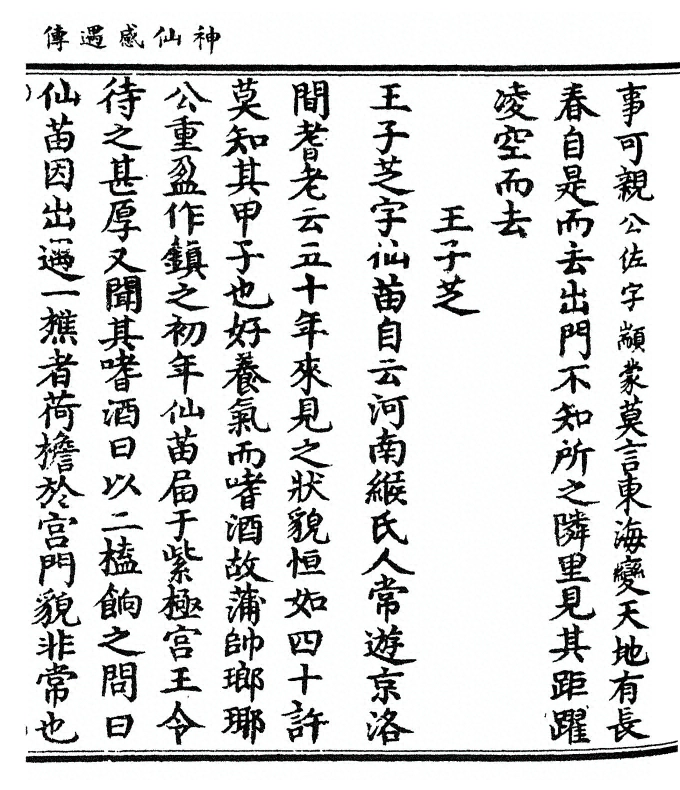 神仙感遇傳
事可親公佐字顓蒙莫言東海變天地有長
春自是而去出門不知所之隣里見其距躍
凌空而去
王子芝
王子芝字仙苗自云河南緱氏人常遊京洛
間耆老云五十年來見之狀貌恒如四十許
莫知其甲子也好養氣而嗜酒故蒲帥瑯琊
公重盈作鎮之初年仙苗届于紫極宮王令
待之甚厚又聞其嗜酒日以二榼餉之間日
仙苗因出遇一樵者荷檐於宮門貌非常也